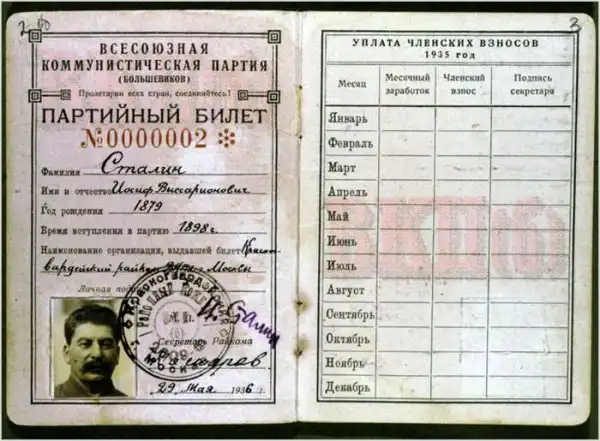 ВСЕСОЮЗНАЯ
КОММУНИСТИЧЕСКАЯ ПАРТИЯ
(БОЛЬШЕВИКОВ)
Пролетарии всех стран, соединяйтесь!
ПАРТИЙНЫЙ БИЛЕТ
№0000002
Фамилия Сталин
Имя и отчество Иосиф Виссарионович
Год рождения 1879
Время вступления в партию 1898 г.
Наименование организации, выдавшей билет Красно
гвардейский райком г. Москвы
Личная
М. П.
Секретарь Райкома
МОСКВА
29 Мая 1936 г.
3
УПЛАТА ЧЛЕНСКИХ ВЗНОСОВ
1935 год
Месяц
Месячный заработок
Членский взнос
Подпись секретаря
Январь
Февраль
Март
Апрель
Май
Июнь
Июль
Август
Сентябрь
Октябрь
Ноябрь
Декабрь
ВКП(б)